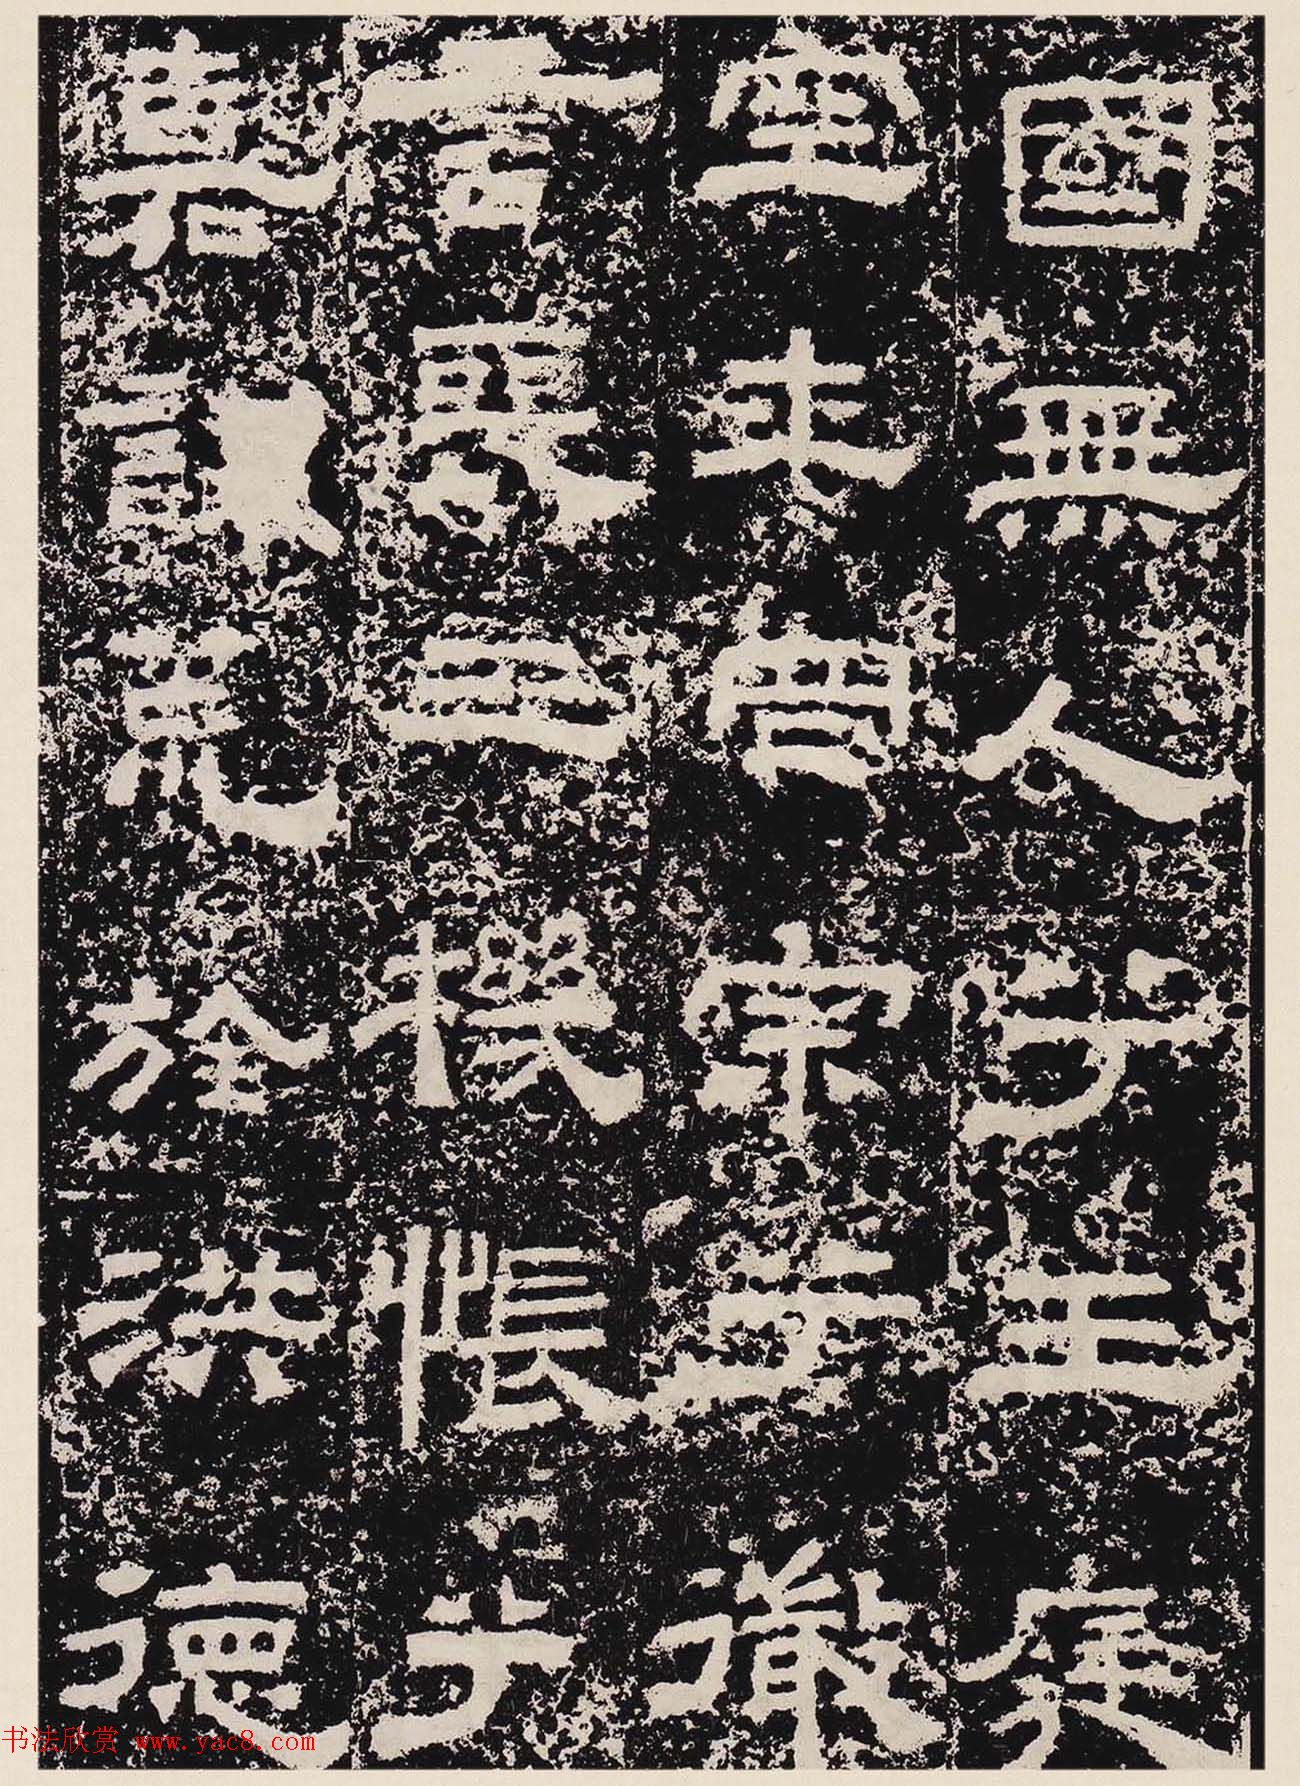 國無人兮王庭
空士罔宗兮微
言喪王機悵兮
嘉謀荒旌洪德
书法欣赏 www.yac8.com